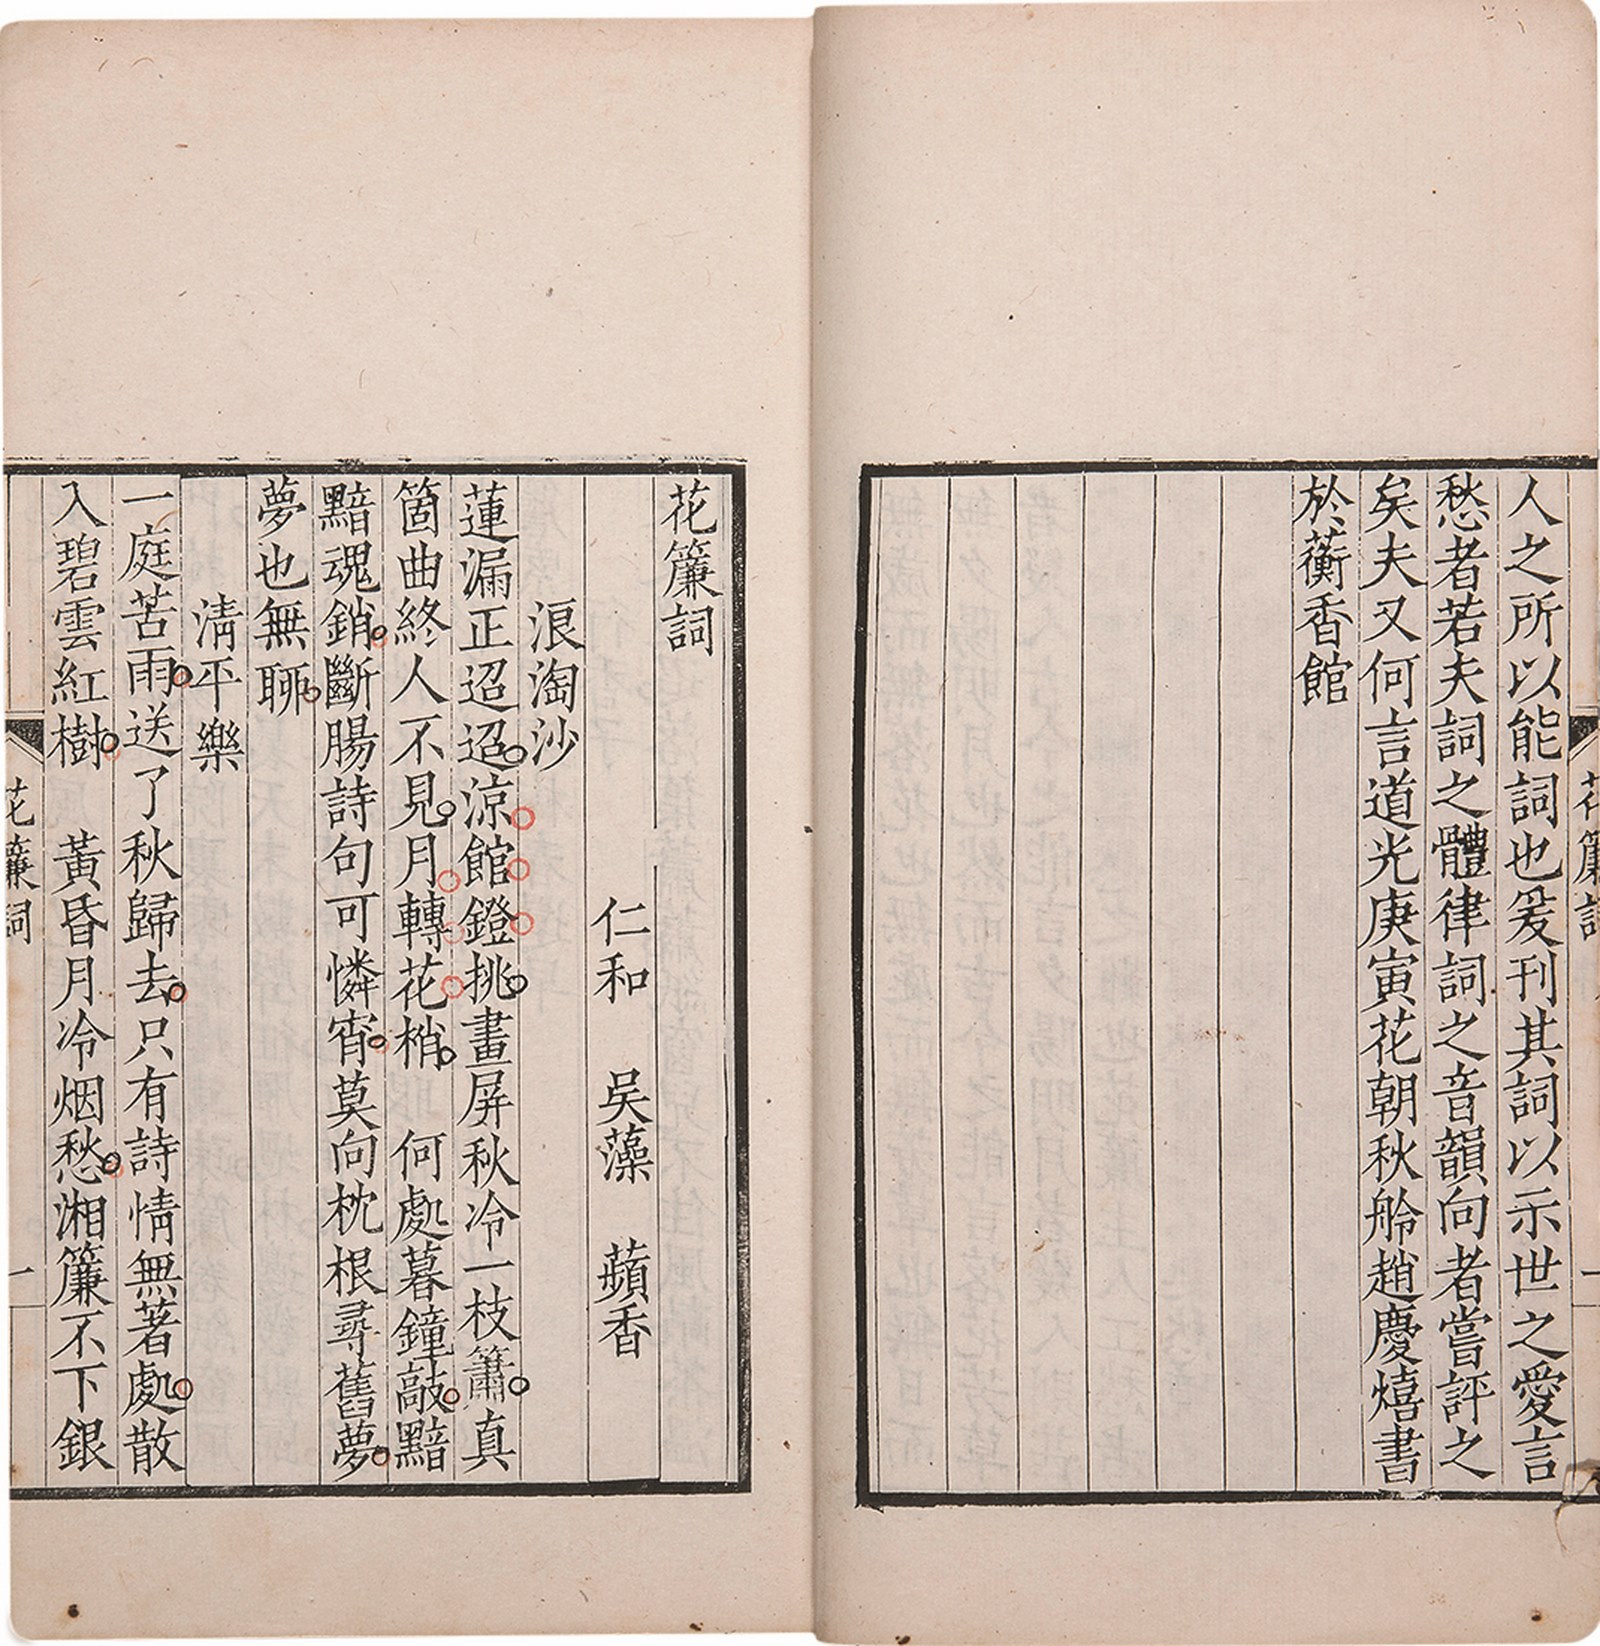 人之所以能詞也爰刊其詞以示世之愛言
愁者若夫詞之體律詞之音韻向者嘗評之
矣夫又何言道光庚寅花朝秋舲趙慶熺書
於蘅香館
花簾詞
仁和 吴藻 蘋香
浪淘沙
蓮漏正迢迢涼館鐙挑畫屏秋冷一枝簫真
箇曲終人不見月轉花梢 何處暮鐘敲黯
黯魂銷斷腸詩句可憐宵莫向枕根尋舊夢
夢也無聊
淸平樂
一庭苦雨送了秋歸去只有詩情無著處散
入碧雲紅樹 黃昏月冷烟愁湘簾不下銀
花簾詞 一